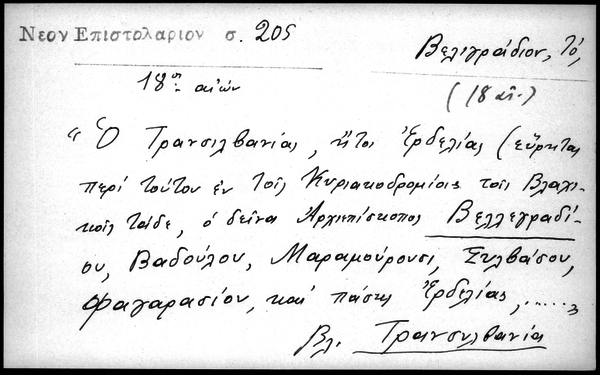 Νεον Επιστολαριον σ. 205
Βελιγράδιον, τό,
18ος αἰών
(18 αἰ.)
"Ὁ Τρανσιλβανίας, ἤτοι Ἐρδελίας (εὕρηται
περί τούτου ἐν τοῖς Κυριακοδρομίοις τοῖς Βλαχι-
κοῖς τάδε, ὁ δεῖνα Ἀρχιεπίσκοπος Βελλεγραδί-
ου, Βαδούλου, Μαραμούρουσι, Σιλβάσου,
Φαγαρασίου, καί πάσης Ἐρδελίας, .......
βλ. Τρανσυλβανία